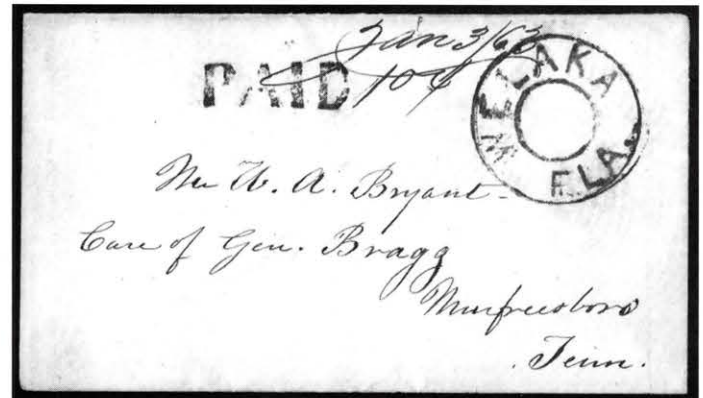 Jan 3/63
PAID 10¢
WELAKA FLA.
Mr W. A. Bryant-
Care of Gen. Bragg
Murfreesboro
Tenn.